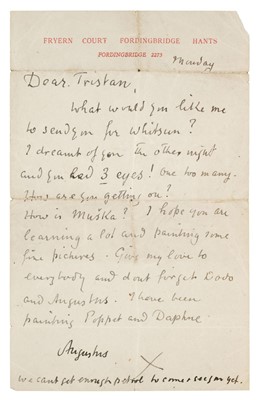 FRYERN COURT FORDINGBRIDGE HANTS
FORDINGBRIDGE 2273
Monday
Dear Tristan,
What would you like me
to send you for whitsun?
I dreamt of you the other night
and you had 3 eyes! One too many.
How are you getting on?
How is Muska? I hope you are
learning a lot and painting some
fine pictures. Give my love to
everybody and dont forget Dodo
and Augustus. I have been
painting Poppet and Daphne
Augustus X
we cant get enough petrol to come & see you yet.